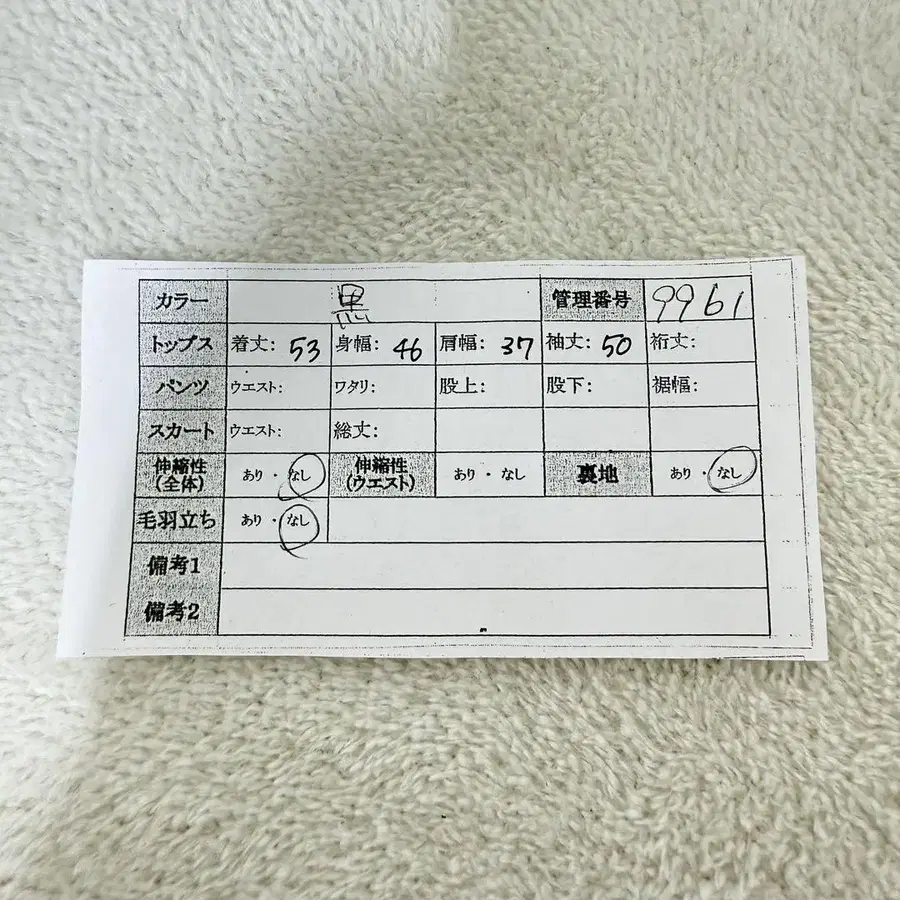 カラー 黒 管理番号 9961
トップス 着丈: 53 身幅: 46 肩幅: 37 袖丈: 50 裄丈:
パンツ ウエスト: ワタリ: 股上: 股下: 裾幅:
スカート ウエスト: 総丈:
伸縮性(全体) あり・なし 伸縮性(ウエスト) あり・なし 裏地 あり・なし
毛羽立ち あり・なし
備考1
備考2